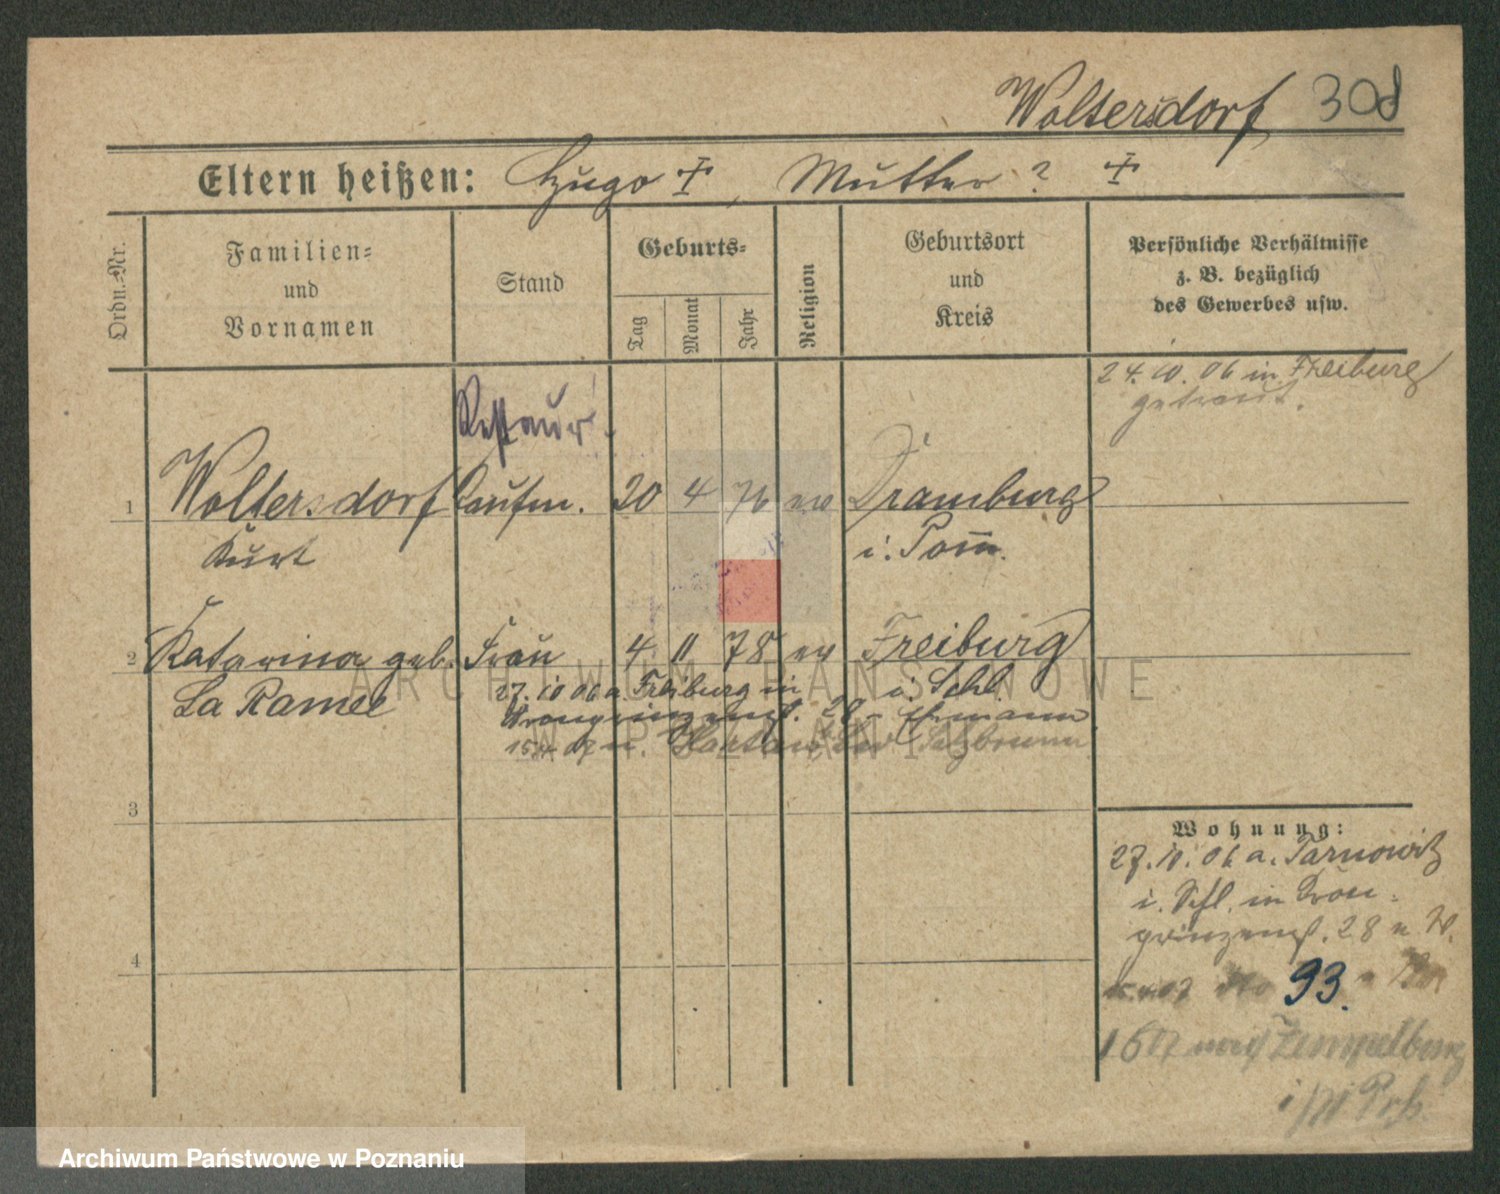 Woltersdorf 308
Eltern heißen: Hugo †, Mutter ? †
Ordn.=Nr.
Familien=
und
Vornamen
Stand
Geburts=
Tag
Monat
Jahr
Religion
Geburtsort
und
Kreis
Persönliche Verhältnisse
z. B. bezüglich
des Gewerbes usw.
24. 10. 06 in Freiburg
getraut.
Restaur.
1 Woltersdorf Kaufm. 20 4 76 ev Dramburg
Kurt i. Pom̄.
2 Katarina geb. Frau 4 11 78 ev Freiburg
La Ramée i. Schl
27. 10 06 a. Freiburg in
Kronprinzenst. 28 Ehmann
15/4 07 n.
3
Wohnung:
27. 10. 06 a. Tarnowitz
i. Schl. in Kron-
prinzenst. 28 n. W.
15.4.07 93.
nach Zempelburg
i/W Prß.
4
ARCHIWUM PAŃSTWOWE
W POZNANIU
Archiwum Państwowe w Poznaniu